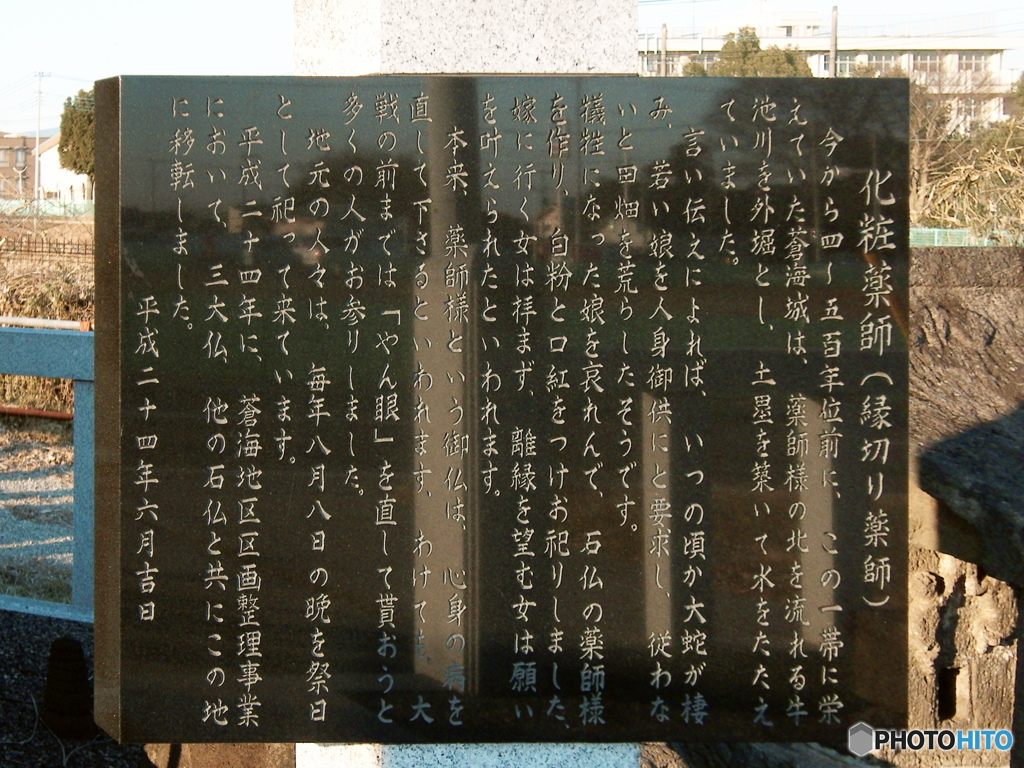 化粧薬師(縁切り薬師)
今から四〜五百年位前に、この一帯に栄
えていた蒼海城は、薬師様の北を流れる牛
池川を外堀とし、土塁を築いて水をたたえ
ていました。
言い伝えによれば、いつの頃か大蛇が棲
み、若い娘を人身御供にと要求し、従わな
いと田畑を荒らしたそうです。
犠牲になった娘を哀れんで、石仏の薬師様
を作り、白粉と口紅をつけお祀りしました、
嫁に行く女は拝まず、離縁を望む女は願い
を叶えられたといわれます。
本来、薬師様という御仏は、心身の病を
直して下さるといわれます、わけても、大
戦の前までは「やん眼」を直して貰おうと
多くの人がお参りしました。
地元の人々は、毎年八月八日の晩を祭日
として祀って来ています。
平成二十四年に、蒼海地区区画整理事業
において、三大仏、他の石仏と共にこの地
に移転しました。
平成二十四年六月吉日
PHOTOHITO